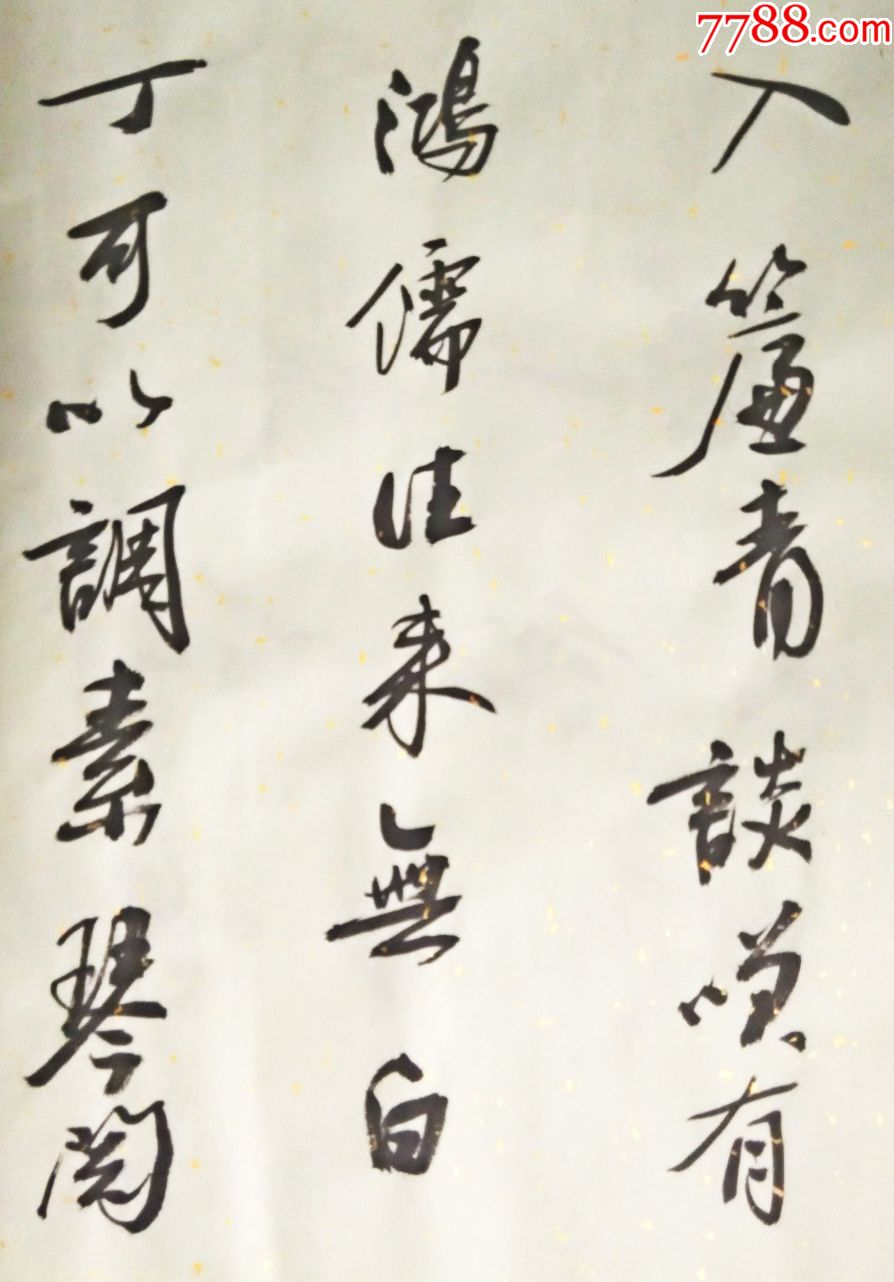 7788.com
入簾青談咲有
鴻儒往来無白
丁可以調素琴閱